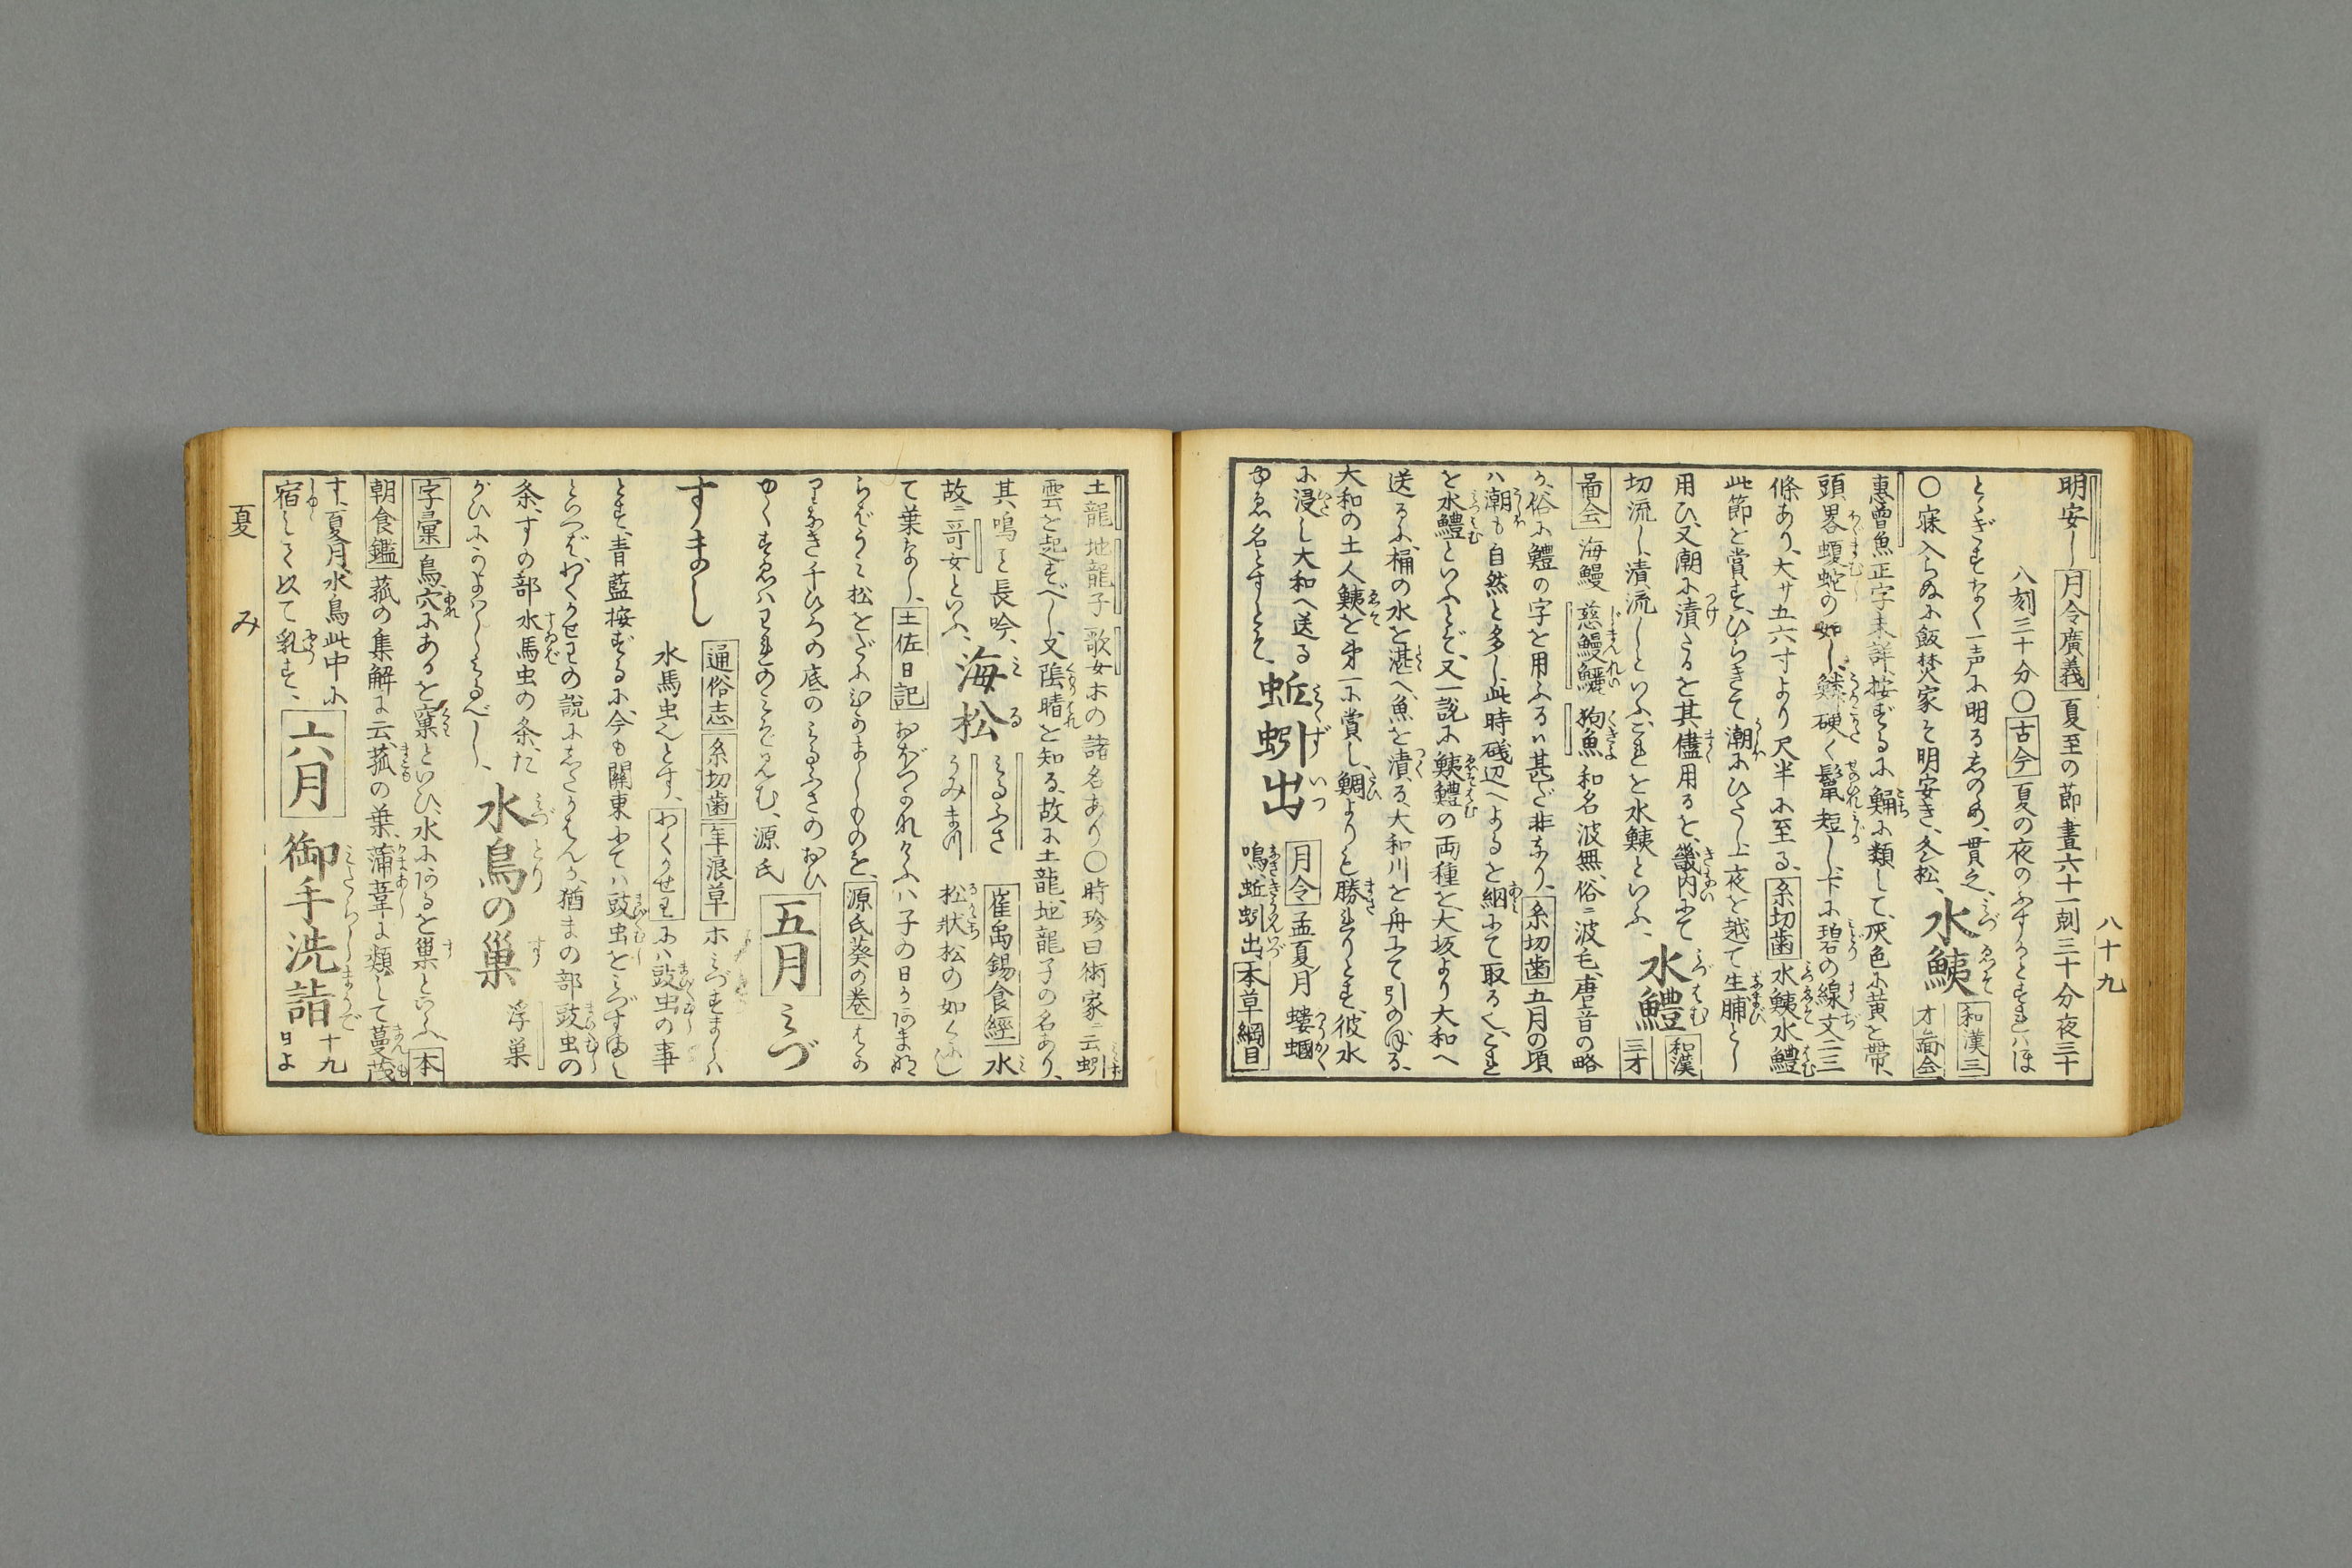 八十九
明安し 月令廣義 夏至の節晝六十一刻三十分夜三十
八刻三十分〇古今 夏の夜のふすかとすれハほ
とゝぎすなく一声に明るしのゝめ、貫之、水鮧 和漢三
〇寐入らぬに飯焚家そ明安き、冬松、才圖会
惠曽魚正字未詳、按ずるに鯔に類して、灰色に黄を帯、
頭畧蝮蛇の如し、鱗硬く鬣短し、下に碧の線文二三
條あり、大サ五六寸より尺半に至る、糸切歯 水鮧水鱧
此節を賞す、ひらきて潮にひたし一夜を越て生脯とし
用ひ、又潮に漬たるを其儘用るを、畿内にて 水鱧 和漢
切流し、清流しといふ、これを水鮧といふ、三才
圖会 海鰻 慈鰻鱺 狗魚 和名波無、俗ニ波毛、唐音の略
か、俗に鱧の字を用ふるハ甚だ非なり、糸切歯 五月の項
ハ潮も自然と多し、此時磯辺へよるを網にて取る也、これ
を水鱧といふとぞ、又一説に鮧鱧の両種を、大坂より大和へ
送るに、桶の水を湛へ、魚を漬る、大和川を舟にて引のぼる、
大和の土人鮧を第一に賞し、鯛よりも勝れりとす、彼水
に浸し大和へ送る 蚯蚓出 月令 孟夏月 螻蟈
ゆゑ名とすとそ、鳴蚯蚓出 本草綱目
土龍 地龍子 歌女 ホの諸名あり〇時珍曰術家ニ云蚓
雲を起すべし、又陰晴を知る、故に土龍、地龍子の名あり、
其鳴こと長吟、海松 みるふさ 崔禹錫食經 水
故ニ哥女といふ、うみまつ 松狀松の如くに
て葉なし、土佐日記 おぼつかなけふハ子の日か海人な
らばうミ松をだにひかましものを、源氏葵の巻 はか
りなき千ひろの底のみるふさのおひ 五月 みづ
ゆくすゑハわれのミぞ見む、源氏
すまし 通俗志 糸切歯 年浪草 ホみづすましハ
水馬虫也とす、わくかせわにハ豉虫の事
とす、青藍按ずるに、今も關東にてハ豉虫をみづすまし
といへば、わくかせわの説にしたがはんか、猶まの部豉虫の
条、すの部水馬虫の条、た 水鳥の巣 浮巣
がひにかよハし見るべし、
字彙 鳥、穴にあるを窠といひ、水にあるを巣といふ 本
朝食鑑 菰の集解に云、菰の葉、蒲葦に類して蔓茂
す、夏月、水鳥此中に 六月 御手洗詣 十九
宿して以て乳す、日よ
夏 み